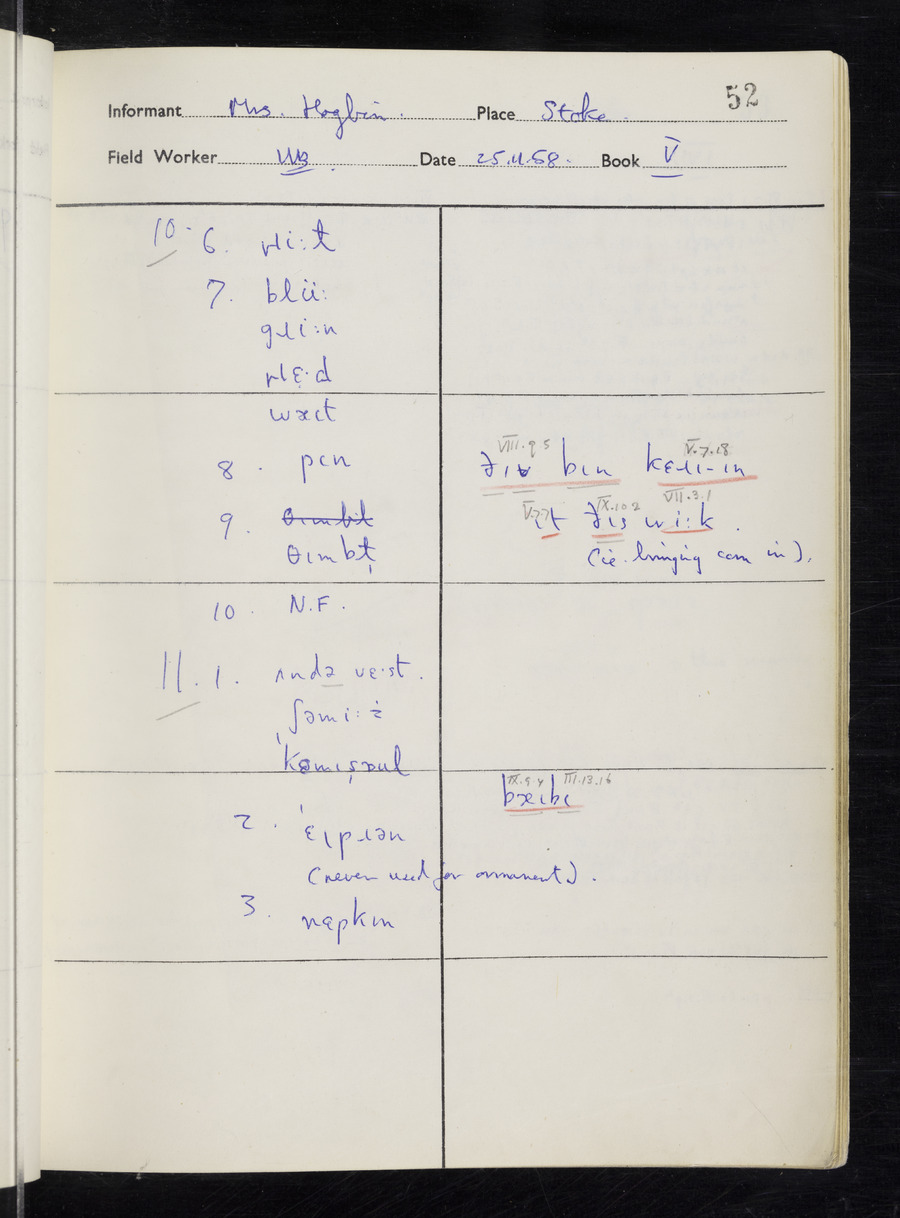 52
Informant Mrs. Hogbin. Place Stoke.
Field Worker Date 25.11.58. Book V
10. 6. ɹi:t
7. blü:
gɹi:n
ɹɛ·d
wæɪt
8. pɪn
VIII.9.5 V.7.18
ðɪv bɪn kɛɹɪ-ɪn
9. θɪmbl̩
V.7.7 IX.10.2 VII.3.1
ɪt ðɪs wi:k.
θɪmbɫ̩
(i.e. bringing corn in).
10. N.F.
11. 1. ʌndə vɛ·st.
ʃəmi:z
kəmɪsəul
IX.9.4 III.13.16
bæɪbɪ
2. ˈɛɪpɹən
(never used for ornament).
3. nɛpkɪn